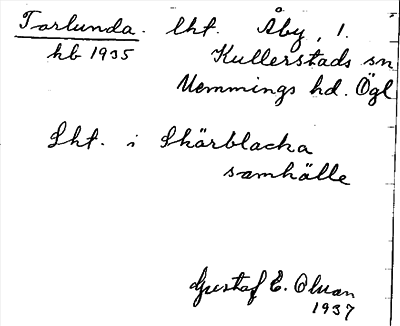 Torlunda. lht. Åby, 1.
hb 1935 Kullerstads sn
Memmings hd. Ögl
Lht. i Skärblacka
samhälle
Gustaf E. Olsson
1937